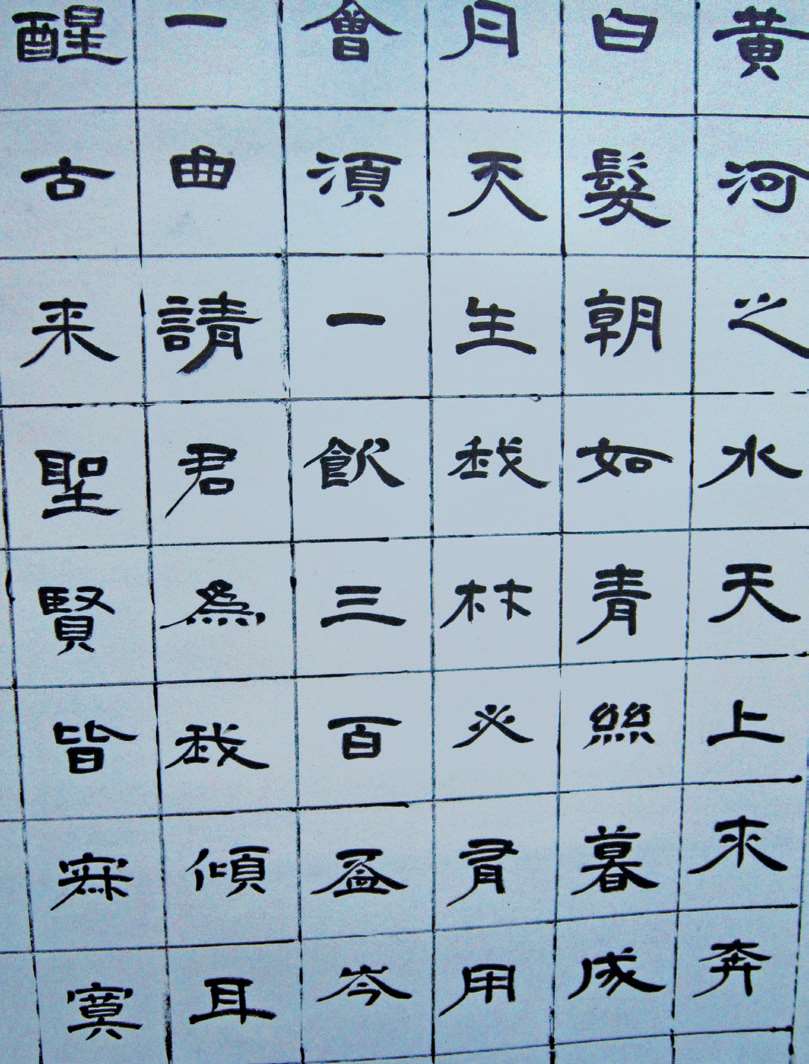 黄河之水天上來奔
白髮朝如青絲暮成
月天生我材必有用
會須一飲三百盃岑
一曲請君為我傾耳
醒古来聖賢皆寂寞